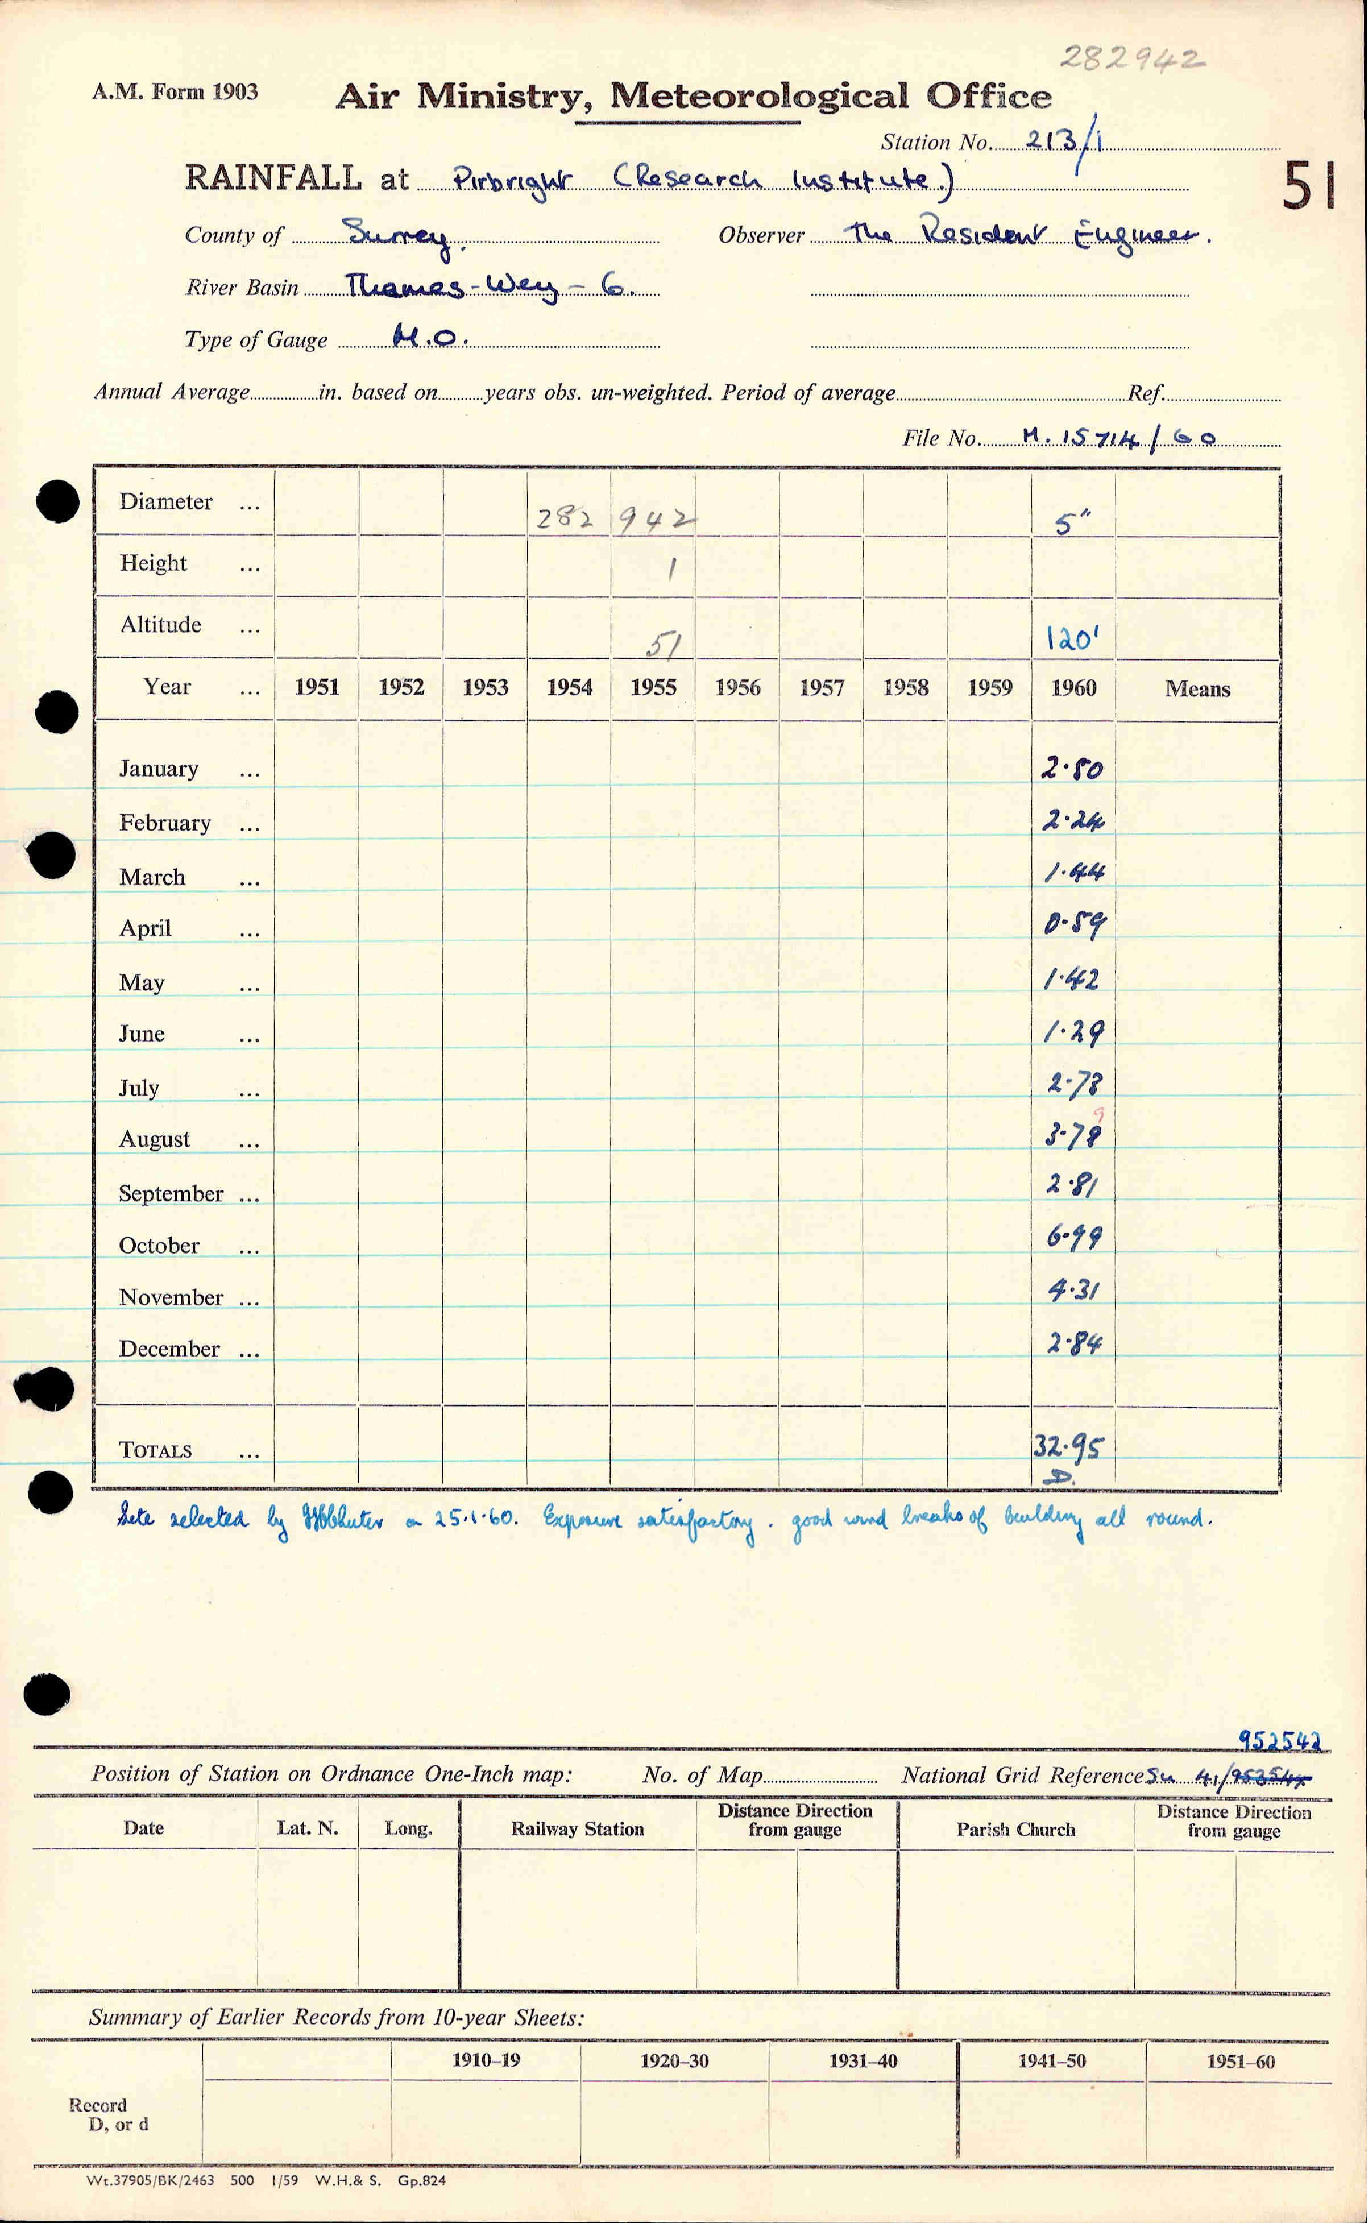 282942
A.M. Form 1903 Air Ministry, Meteorological Office
Station No. 213/1
RAINFALL at Pirbright (Research Institute.) 51
County of Surrey. Observer The Resident Engineer.
River Basin Thames-Wey - 6.
Type of Gauge M.O.
Annual Average in. based on years obs. un-weighted. Period of average Ref.
File No. M. 15714/60
Diameter ... 282 942 5"
Height ... 1
Altitude ... 51 120'
Year ... 1951 1952 1953 1954 1955 1956 1957 1958 1959 1960 Means
January ... 2.50
February ... 2.24
March ... 1.44
April ... 0.59
May ... 1.42
June ... 1.29
July ... 2.73
9
August ... 3.78
September ... 2.81
October ... 6.99
November ... 4.31
December ... 2.84
TOTALS ... 32.95
D.
Site selected by on 25.1.60. Exposure satisfactory. good wind breaks of building all round.
952542
Position of Station on Ordnance One-Inch map: No. of Map National Grid Reference SU 41/
Date Lat. N. Long. Railway Station Distance Direction from gauge Parish Church Distance Direction from gauge
Summary of Earlier Records from 10-year Sheets:
1910-19 1920-30 1931-40 1941-50 1951-60
Record
D, or d
Wt.37905/BK/2463 500 1/59 W.H.& S. Gp.824